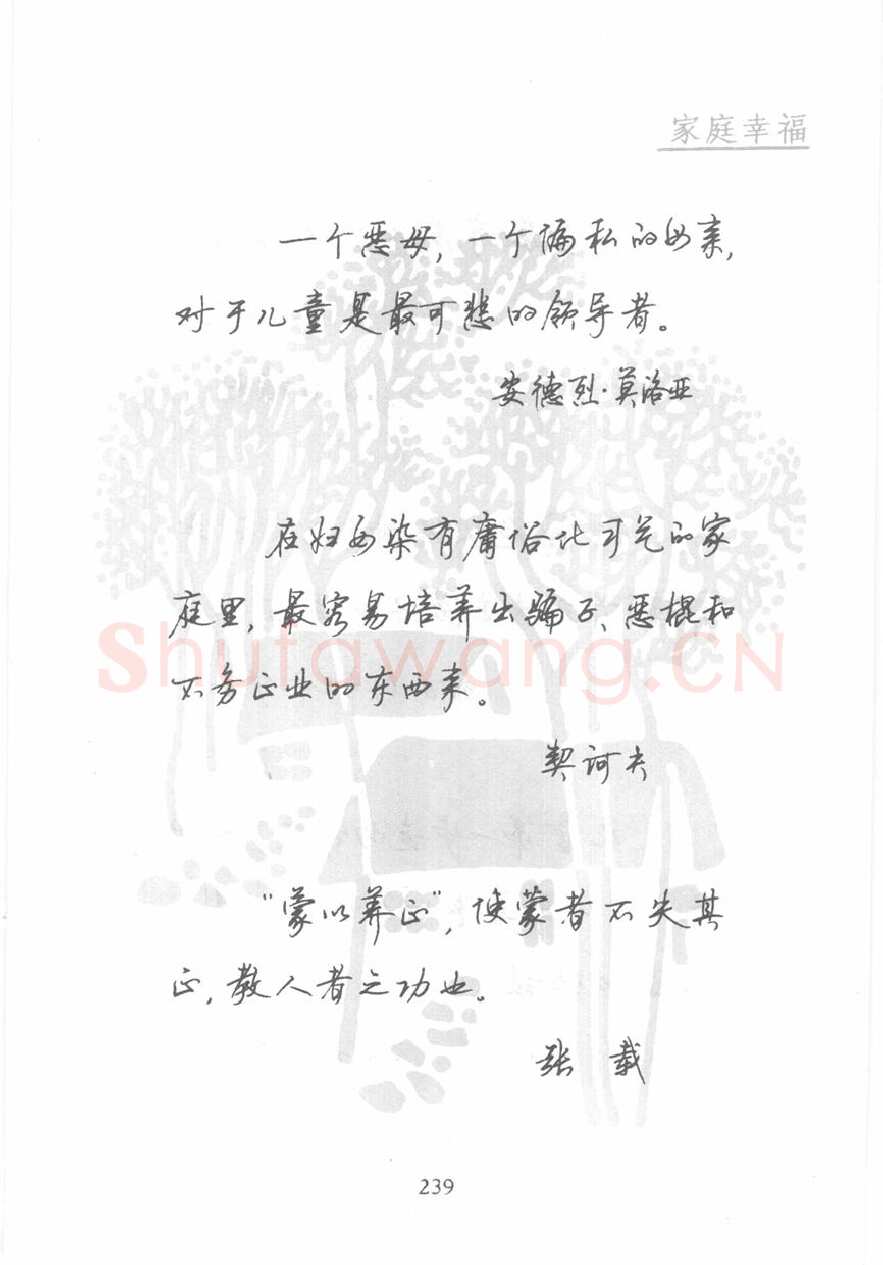 家庭幸福
一个恶母，一个偏私的母亲，
对于儿童是最可悲的领导者。
安德烈·莫洛亚
在妇女染有庸俗化习气的家
庭里，最容易培养出骗子、恶棍和
不务正业的东西来。
契诃夫
“蒙以养正”，使蒙者不失其
正，教人者之功也。
张载
Shufawang.CN
239